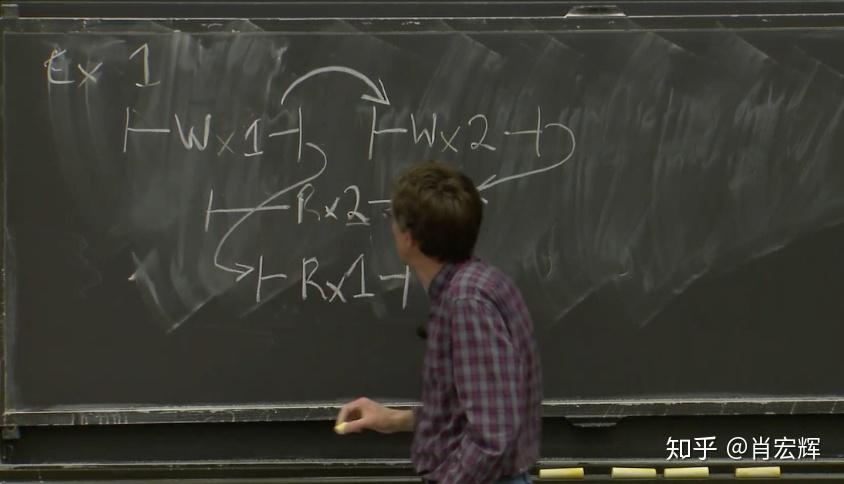 Ex 1
Wx1 Wx2
Rx2
Rx1
知乎 @肖宏辉